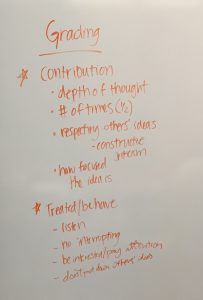 Grading
* Contribution
• depth of thought
• # of times (1/2)
• respecting others' ideas
- constructive
• how focused
the idea is
* Treated/behave
- listen
- no interrupting
- be interested/pay attention
- don't put down others' ideas